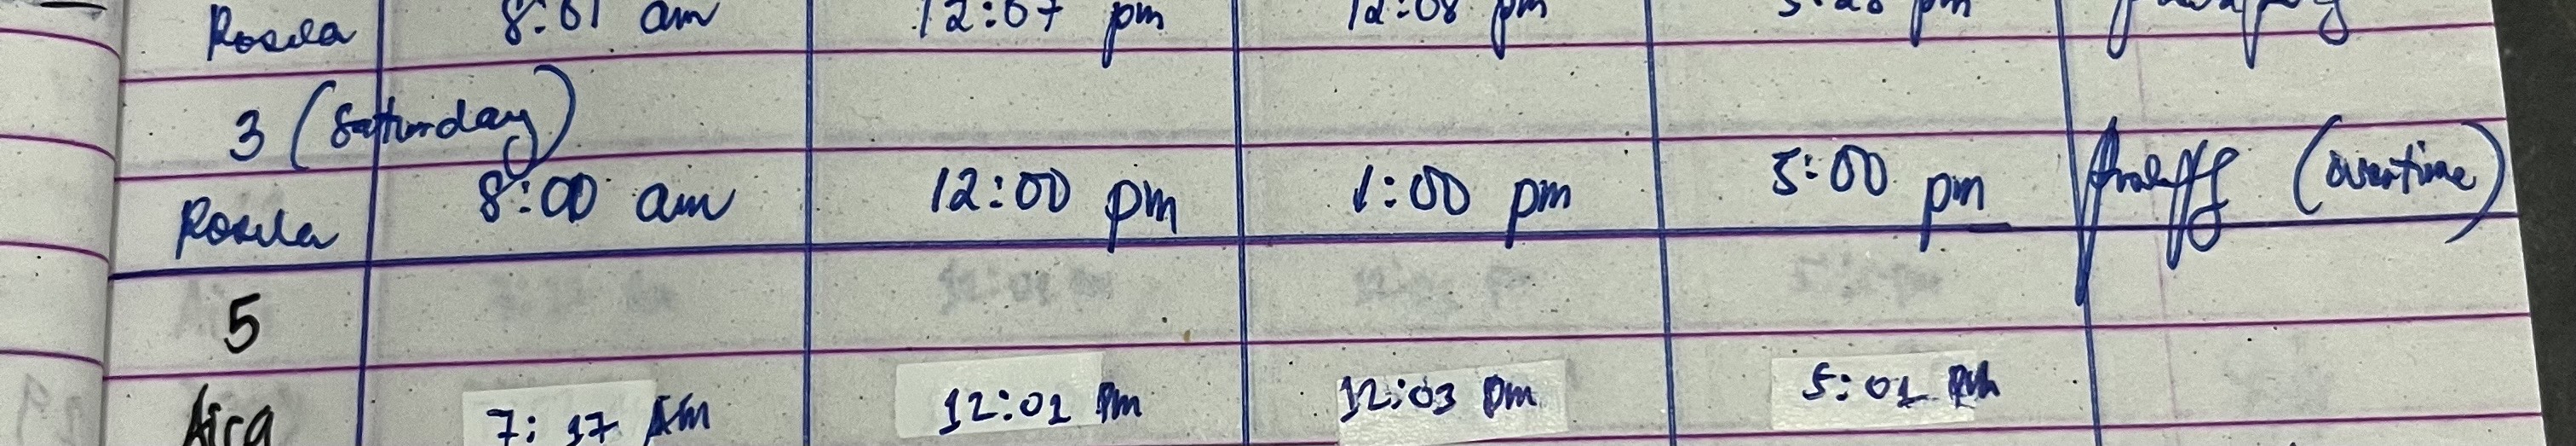 Rosela 8:01 am 12:07 pm 12:08 pm
3 (Satturday)
Rosela 8:00 am 12:00 pm 1:00 pm 5:00 pm (overtime)
5
Aira 7:37 AM 12:01 Pm 12:03 Pm 5:01 PM